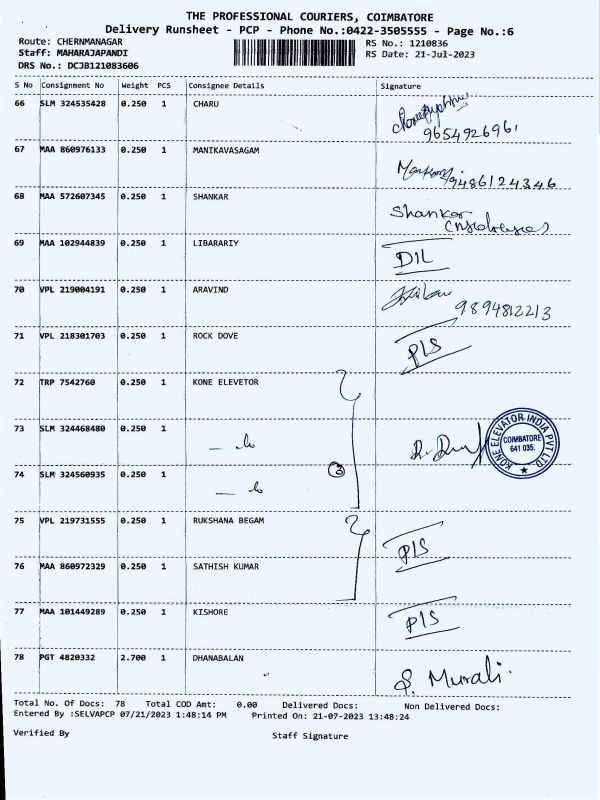 THE PROFESSIONAL COURIERS, COIMBATORE
Delivery Runsheet - PCP - Phone No.:0422-3505555 - Page No.:6
Route: CHERNMANAGAR RS No.: 1210836
Staff: MAHARAJAPANDI RS Date: 21-Jul-2023
DRS No.: DCJB121083606
S No Consignment No Weight PCS Consignee Details Signature
66 SLM 324535428 0.250 1 CHARU
9654926961
67 MAA 860976133 0.250 1 MANIKAVASAGAM
9486124346
68 MAA 572607345 0.250 1 SHANKAR
Shankar
69 MAA 102944839 0.250 1 LIBARARIY
DIL
70 VPL 219004191 0.250 1 ARAVIND
9894812213
71 VPL 218301703 0.250 1 ROCK DOVE
PIS
72 TRP 7542760 0.250 1 KONE ELEVETOR
73 SLM 324468480 0.250 1
KONE ELEVATOR INDIA PVT LTD
COIMBATORE
641 035.
3
74 SLM 324560935 0.250 1
75 VPL 219731555 0.250 1 RUKSHANA BEGAM
PIS
76 MAA 860972329 0.250 1 SATHISH KUMAR
77 MAA 101449289 0.250 1 KISHORE
PIS
78 PGT 4820332 2.700 1 DHANABALAN
S. Murali.
Total No. Of Docs: 78 Total COD Amt: 0.00 Delivered Docs: Non Delivered Docs:
Entered By :SELVAPCP 07/21/2023 1:48:14 PM Printed On: 21-07-2023 13:48:24
Verified By Staff Signature